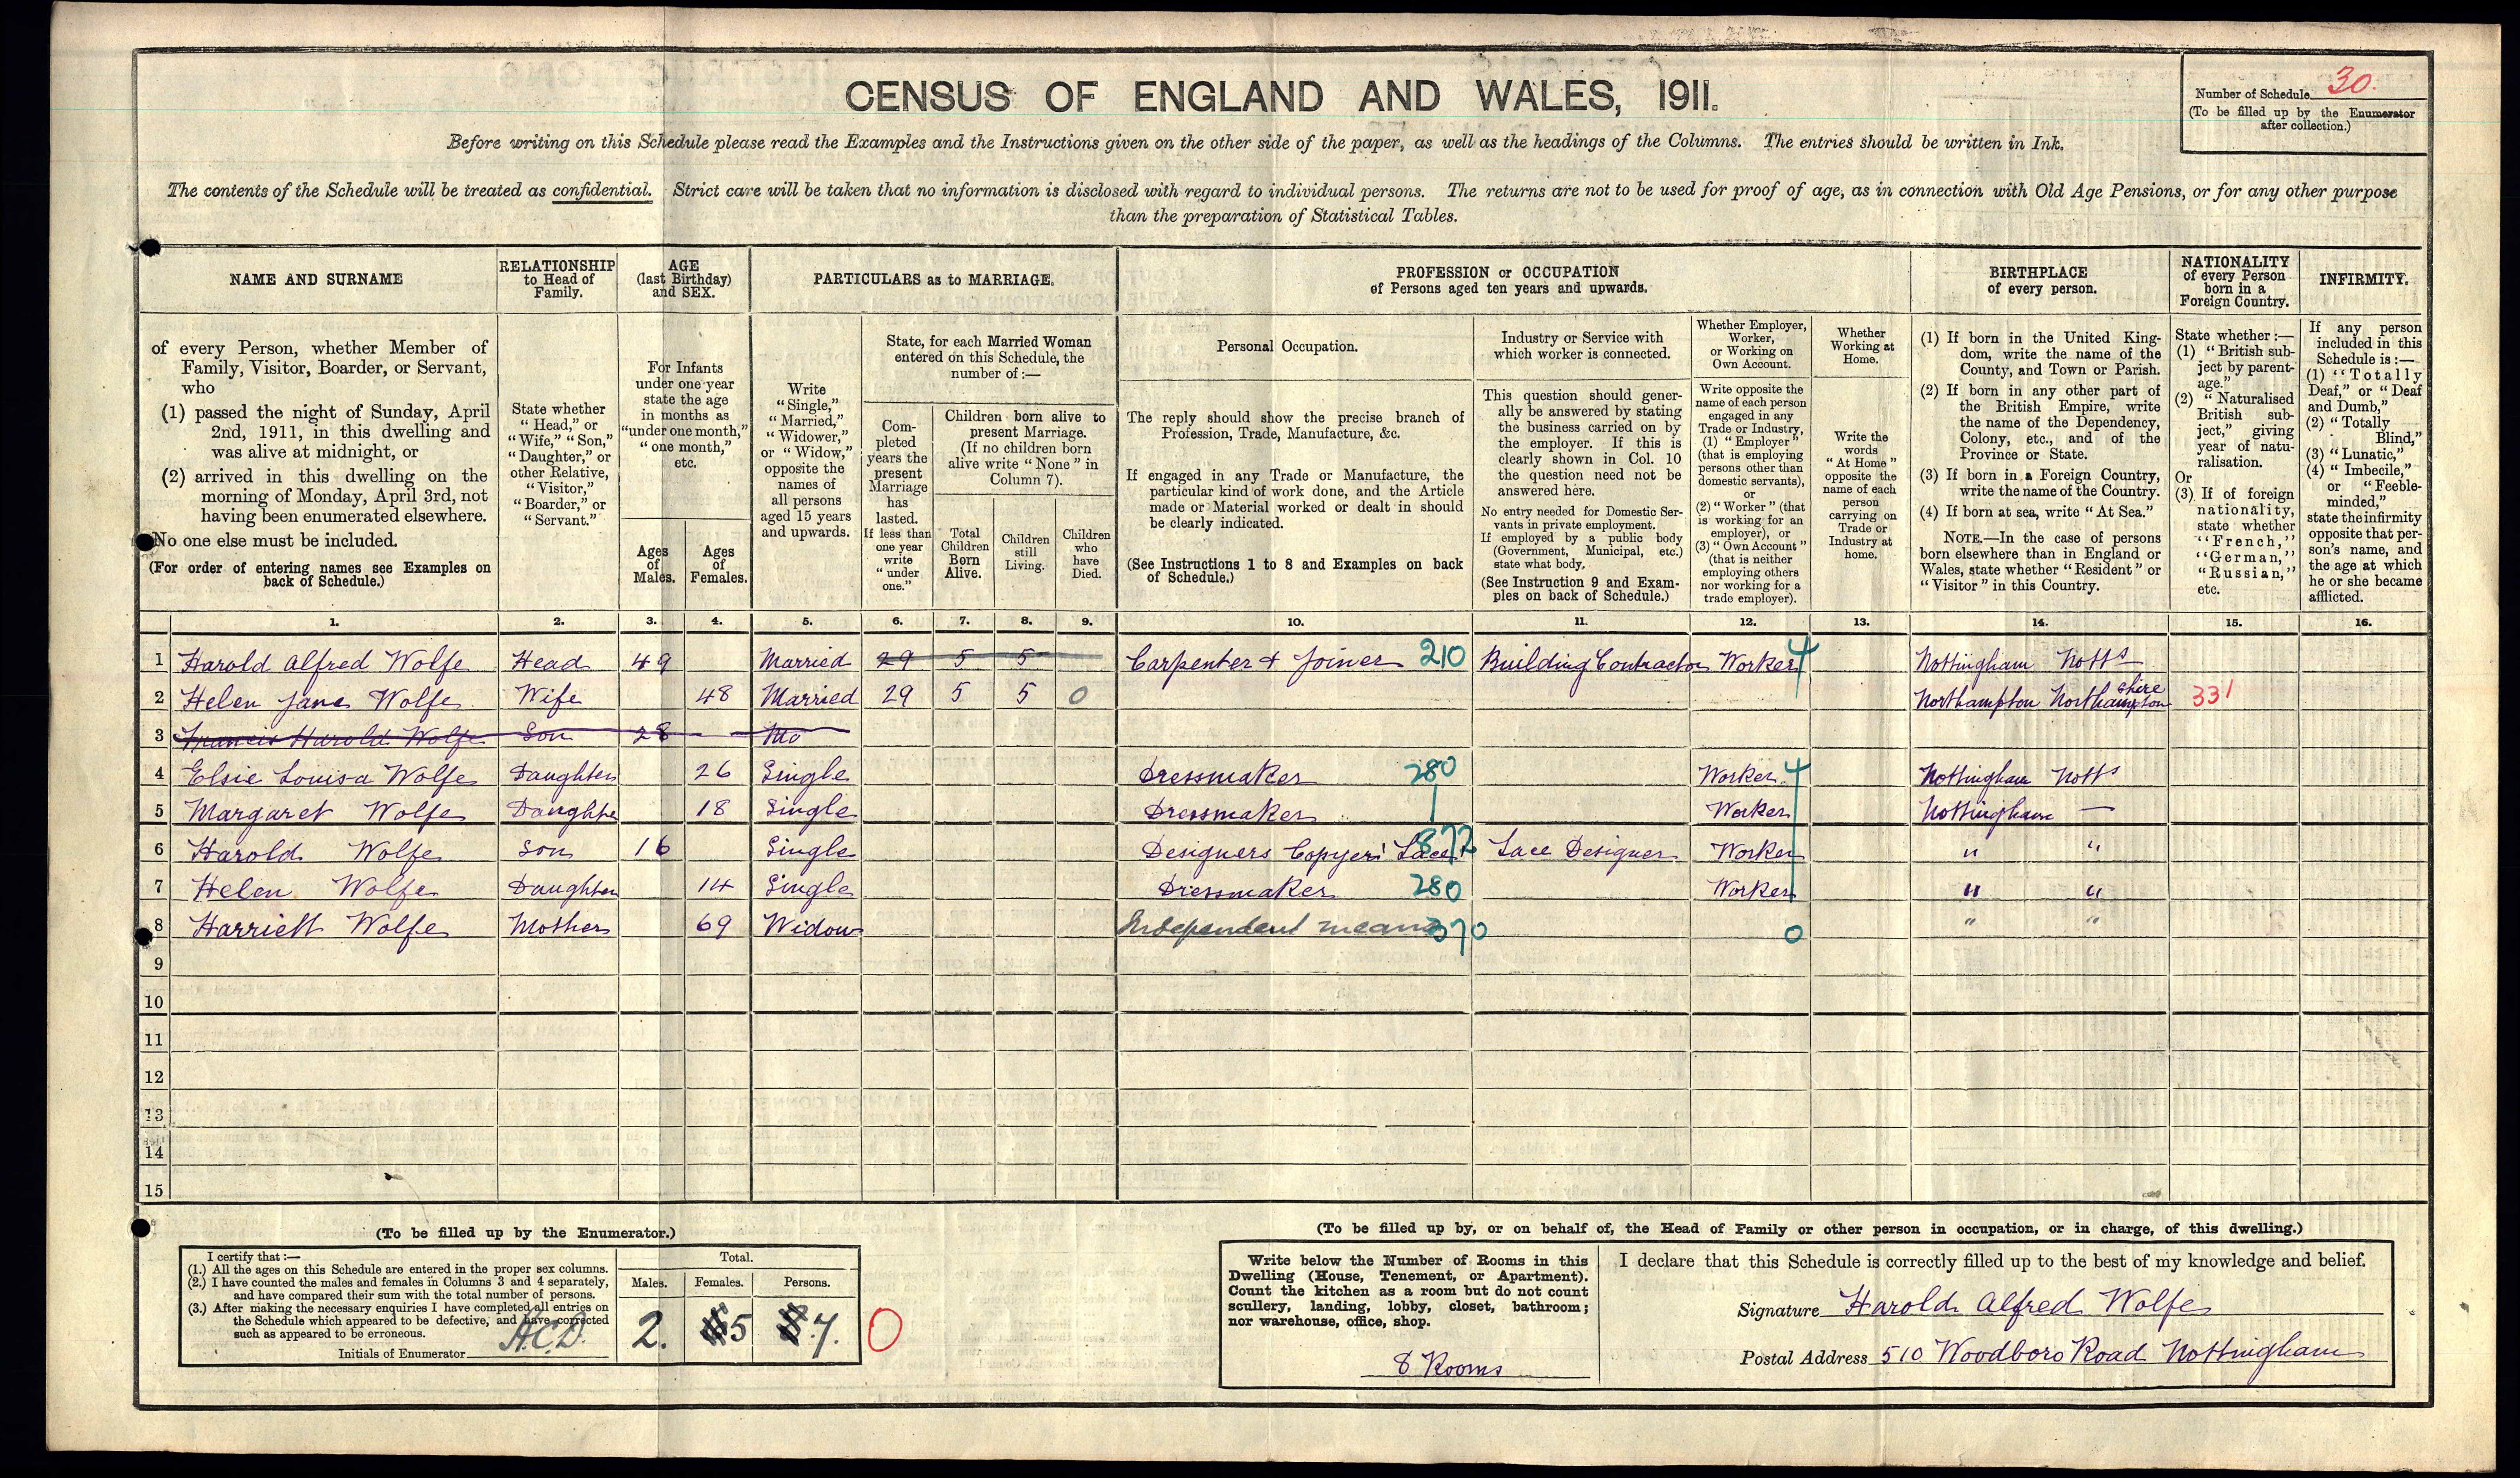 CENSUS OF ENGLAND AND WALES, 1911.
Number of Schedule 30.
(To be filled up by the Enumerator
after collection.)
Before writing on this Schedule please read the Examples and the Instructions given on the other side of the paper, as well as the headings of the Columns. The entries should be written in Ink.
The contents of the Schedule will be treated as confidential. Strict care will be taken that no information is disclosed with regard to individual persons. The returns are not to be used for proof of age, as in connection with Old Age Pensions, or for any other purpose
than the preparation of Statistical Tables.
NAME AND SURNAME
of every Person, whether Member of
Family, Visitor, Boarder, or Servant,
who
(1) passed the night of Sunday, April
2nd, 1911, in this dwelling and
was alive at midnight, or
(2) arrived in this dwelling on the
morning of Monday, April 3rd, not
having been enumerated elsewhere.
No one else must be included.
(For order of entering names see Examples on
back of Schedule.)
RELATIONSHIP
to Head of
Family.
State whether
"Head," or
"Wife," "Son,"
"Daughter," or
other Relative,
"Visitor,"
"Boarder," or
"Servant."
AGE
(last Birthday)
and SEX.
For Infants
under one year
state the age
in months as
"under one month,"
"one month,"
etc.
Ages
of
Males.
Ages
of
Females.
PARTICULARS as to MARRIAGE.
Write
"Single,"
"Married,"
"Widower,"
or "Widow,"
opposite the
names of
all persons
aged 15 years
and upwards.
State, for each Married Woman
entered on this Schedule, the
number of:—
Com-
pleted
years the
present
Marriage
has
lasted.
If less than
one year
write
"under
one."
Children born alive to
present Marriage.
(If no children born
alive write "None" in
Column 7).
Total
Children
Born
Alive.
Children
still
Living.
Children
who
have
Died.
PROFESSION or OCCUPATION
of Persons aged ten years and upwards.
Personal Occupation.
The reply should show the precise branch of
Profession, Trade, Manufacture, &c.
If engaged in any Trade or Manufacture, the
particular kind of work done, and the Article
made or Material worked or dealt in should
be clearly indicated.
(See Instructions 1 to 8 and Examples on back
of Schedule.)
Industry or Service with
which worker is connected.
This question should gener-
ally be answered by stating
the business carried on by
the employer. If this is
clearly shown in Col. 10
the question need not be
answered here.
No entry needed for Domestic Ser-
vants in private employment.
If employed by a public body
(Government, Municipal, etc.)
state what body.
(See Instruction 9 and Exam-
ples on back of Schedule.)
Whether Employer,
Worker,
or Working on
Own Account.
Write opposite the
name of each person
engaged in any
Trade or Industry,
(1) "Employer"
(that is employing
persons other than
domestic servants),
or
(2) "Worker" (that
is working for an
employer), or
(3) "Own Account"
(that is neither
employing others
nor working for a
trade employer).
Whether
Working at
Home.
Write the
words
"At Home"
opposite the
name of each
person
carrying on
Trade or
Industry at
home.
BIRTHPLACE
of every person.
(1) If born in the United King-
dom, write the name of the
County, and Town or Parish.
(2) If born in any other part of
the British Empire, write
the name of the Dependency,
Colony, etc., and of the
Province or State.
(3) If born in a Foreign Country,
write the name of the Country.
(4) If born at sea, write "At Sea."
NOTE.—In the case of persons
born elsewhere than in England or
Wales, state whether "Resident" or
"Visitor" in this Country.
NATIONALITY
of every Person
born in a
Foreign Country.
State whether:—
(1) "British sub-
ject by parent-
age."
(2) "Naturalised
British sub-
ject," giving
year of natu-
ralisation.
Or
(3) If of foreign
nationality,
state whether
"French,"
"German,"
"Russian,"
etc.
INFIRMITY.
If any person
included in this
Schedule is:—
(1) "Totally
Deaf," or "Deaf
and Dumb,"
(2) "Totally
Blind,"
(3) "Lunatic,"
(4) "Imbecile,"
or "Feeble-
minded,"
state the infirmity
opposite that per-
son's name, and
the age at which
he or she became
afflicted.
1. 2. 3. 4. 5. 6. 7. 8. 9. 10. 11. 12. 13. 14. 15. 16.
1 Harold Alfred Wolfe Head 49 Married 29 5 5 Carpenter & Joiner 210 Building Contractor Worker 4 Nottingham Notts
2 Helen Jane Wolfe Wife 48 Married 29 5 5 0 Northampton Northamptonshire 331
3 Francis Harold Wolfe Son 28 Mo
4 Elsie Louisa Wolfe Daughter 26 Single Dressmaker 280 Worker 4 Nottingham Notts
5 Margaret Wolfe Daughter 18 Single Dressmaker Worker Nottingham —
6 Harold Wolfe Son 16 Single Designers Copyer Lace 872 Lace Designer Worker " "
7 Helen Wolfe Daughter 14 Single Dressmaker 280 Worker " "
8 Harriett Wolfe Mother 69 Widow Independent means 370 0 " "
9
10
11
12
13
14
15
(To be filled up by the Enumerator.)
I certify that:—
(1.) All the ages on this Schedule are entered in the proper sex columns.
(2.) I have counted the males and females in Columns 3 and 4 separately,
and have compared their sum with the total number of persons.
(3.) After making the necessary enquiries I have completed all entries on
the Schedule which appeared to be defective, and have corrected
such as appeared to be erroneous.
Initials of Enumerator A.C.D.
Total.
Males. Females. Persons.
2. 5 7. 0
(To be filled up by, or on behalf of, the Head of Family or other person in occupation, or in charge, of this dwelling.)
Write below the Number of Rooms in this
Dwelling (House, Tenement, or Apartment).
Count the kitchen as a room but do not count
scullery, landing, lobby, closet, bathroom;
nor warehouse, office, shop.
8 Rooms
I declare that this Schedule is correctly filled up to the best of my knowledge and belief.
Signature Harold Alfred Wolfe
Postal Address 510 Woodboro Road Nottingham